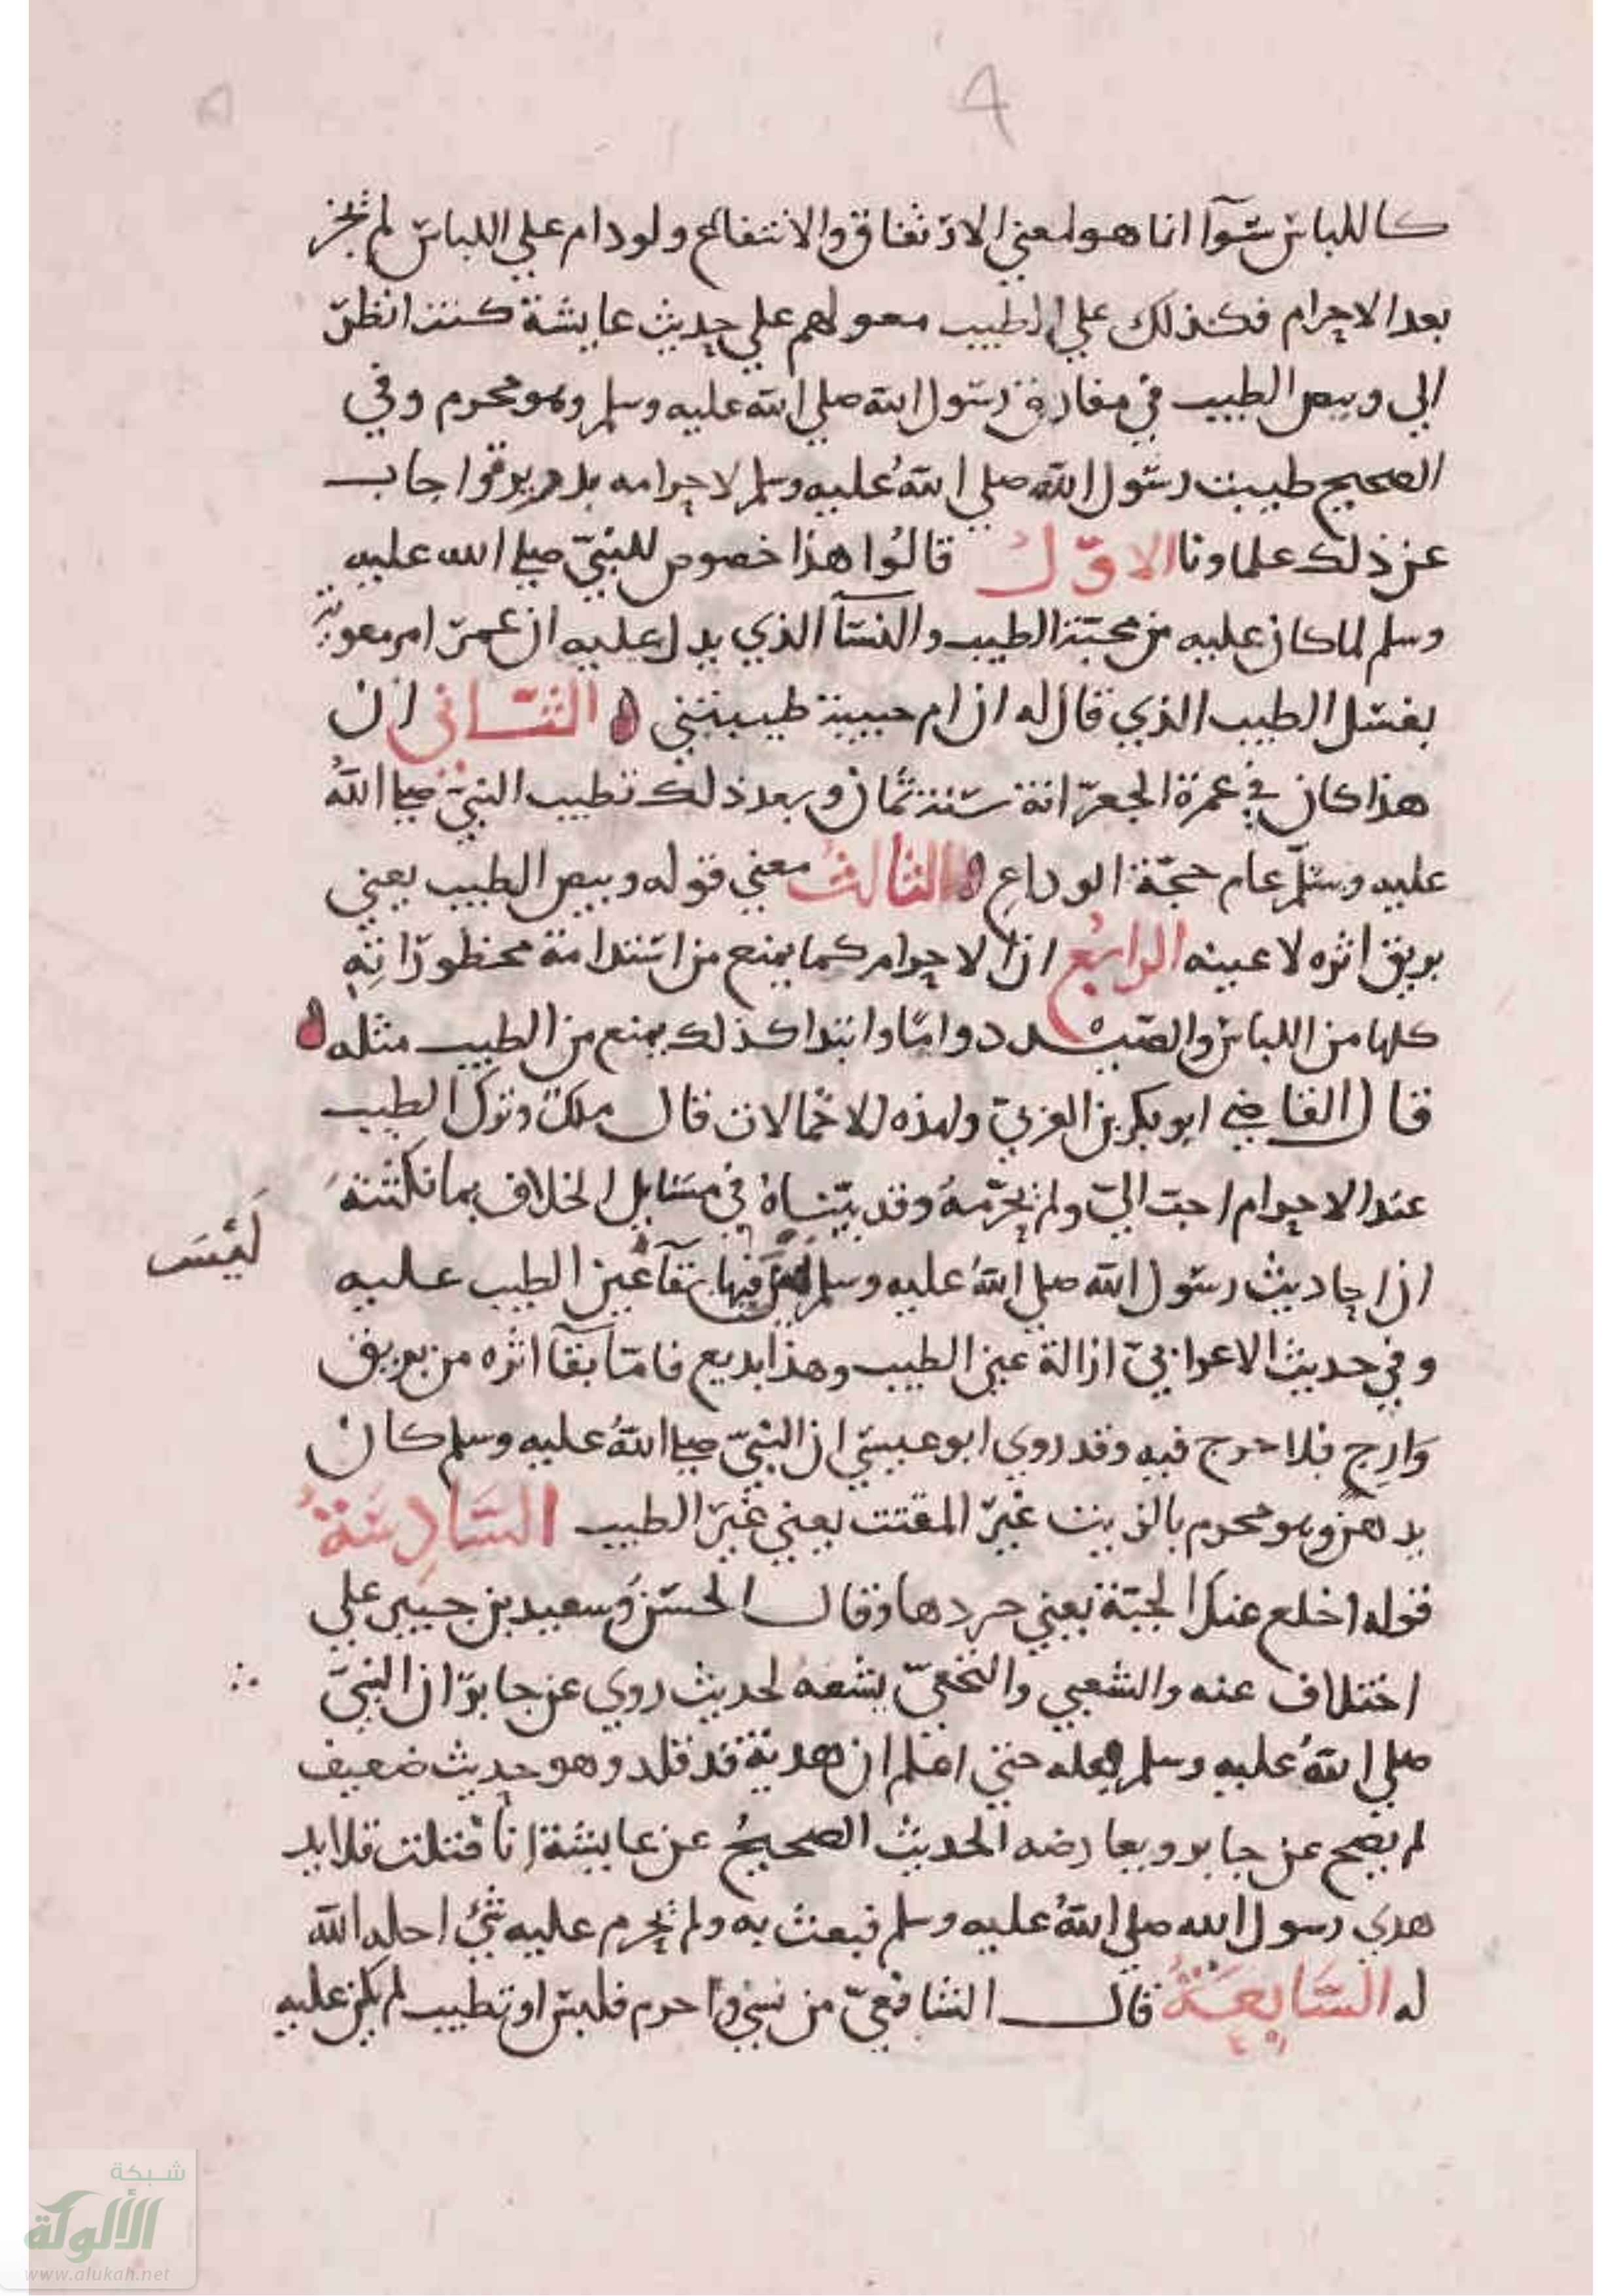 كاللباس سوآ انما هو لمعني الارتفاق والانتفاع ولو دام علي اللباس لم يجز
بعد الاحرام فكذلك علي الطيب معولهم علي حديث عايشة كنت انظر
الي وبيص الطيب في مفارق رسول الله صلي الله عليه وسلم وهو محرم وفي
الصحيح طيبت رسول الله صلي الله عليه وسلم لاحرامه فاجاب
عن ذلك علماونا الاوّل قالُوا هذا خصوص للنبيّ صلي الله عليه
وسلم لما كان عليه من محبة الطيب والنسآ الذي يدل عليه ان عمر امر معوية
بغسل الطيب الذي قال له ان ام حبيبة طيبتني الثاني ان
هذا كان في عمرة الجعرّانة سنة ثمان وبعد ذلك تطيب النبيّ صلي اللهُ
عليه وسلم عام حجّة الوداع الثالث معني قوله وبيص الطيب يعني
بريق اثره لا عينه الرابع ان الاحرام كما يمنع من استدامة محظوراته
كلها من اللباس والصيد دواما وابتدا كذلك يمنع من الطيب مثله
قال القاضي ابو بكر بن العربيّ ولهذه الاحتمالات قال ملك وترك الطيب
عند الاحرام احب اليّ ولم يحرّمهُ وقد بيّناهُ في مسايل الخلاف بما نكتته
ان احاديث رسول الله صلي اللهُ عليه وسلم ليس فيها بقآ عين الطيب عليه
لَيْسَ
وفي حديث الاعرابيّ ازالة عين الطيب وهذا بديع فامّا بقآ اثره من بريق
وَارِج فلا حرج فيه وقد روي ابو عيسي ان النبيّ صلي اللهُ عليه وسلم كان
يدهن وهو محرم بالزيت غير المقتت يعني غير الطيب السَّادِسَةُ
قوله اخلع عنك الجبّة يعني جردها وقال الحسن وسعيد بن جبير علي
اختلاف عنه والشعبي والنخعيّ يشقه لحديث روي عن جابر ان النبيّ
صلي اللهُ عليه وسلم فعله حتي اعلم ان هديه قد قلد وهو حديث ضعيف
لم يصح عن جابر ويعارضه الحديث الصحيحُ عن عايشة انا فتلت قلايد
هدي رسول الله صلي اللهُ عليه وسلم فبعث به ولم يحرم عليه شئ احله الله
له السَّابِعَةُ قال الشافعيّ من نسي واحرم فلبس او تطيب لم يكن عليه
شبكة
الألوكة
www.alukah.net